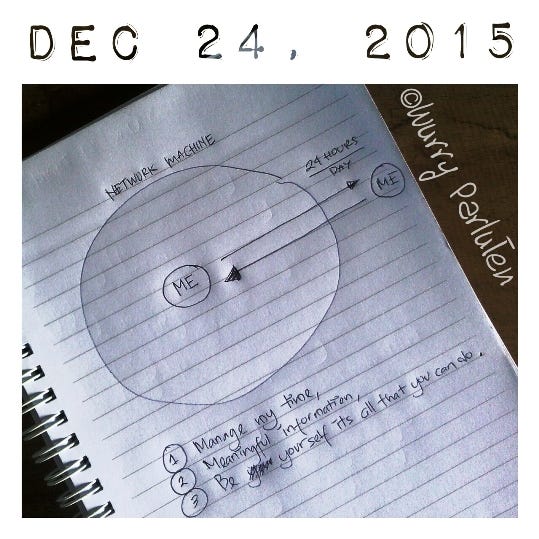 DEC 24, 2015
©Wurry Parluten
NETWORK MACHINE
24 HOURS
DAY
ME
ME
1 Manage my time,
2 Meaningful information,
3 Be yourself its all that you can do.